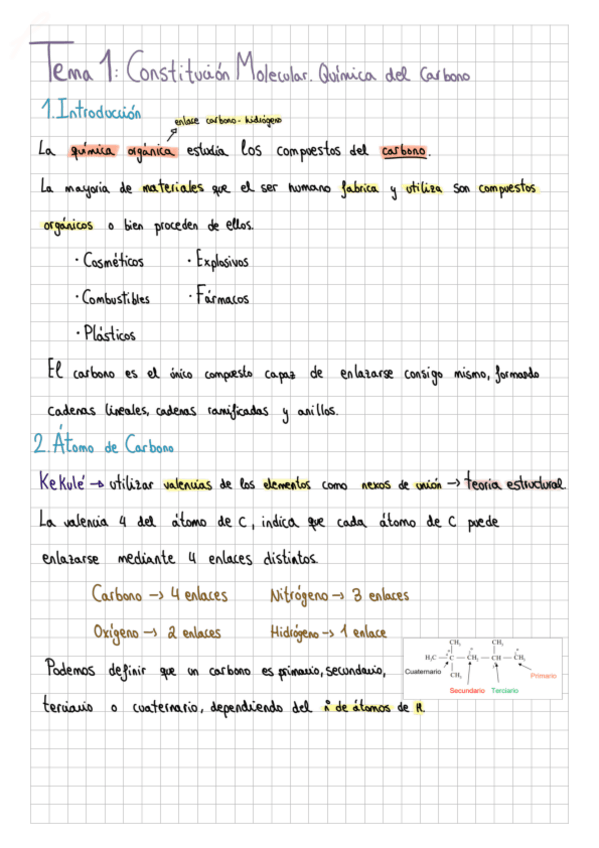 Tema 1: Constitución Molecular. Química del Carbono
1. Introducción
enlace carbono - hidrógeno
La química orgánica estudia los compuestos del carbono.
La mayoría de materiales que el ser humano fabrica y utiliza son compuestos
orgánicos o bien proceden de ellos.
· Cosméticos · Explosivos
· Combustibles · Fármacos
· Plásticos
El carbono es el único compuesto capaz de enlazarse consigo mismo, formando
cadenas lineales, cadenas ramificadas y anillos.
2. Átomo de Carbono
Kekulé → utilizar valencias de los elementos como nexos de unión → teoría estructural.
La valencia 4 del átomo de C, indica que cada átomo de C puede
enlazarse mediante 4 enlaces distintos.
Carbono → 4 enlaces Nitrógeno → 3 enlaces
Oxígeno → 2 enlaces Hidrógeno → 1 enlace
Podemos definir que un carbono es primario, secundario,
terciario o cuaternario, dependiendo del nº de átomos de H.
CH₃ CH₃
H₃C — C — CH₂ — CH — CH₃
CH₃
Cuaternario
Primario
Secundario Terciario